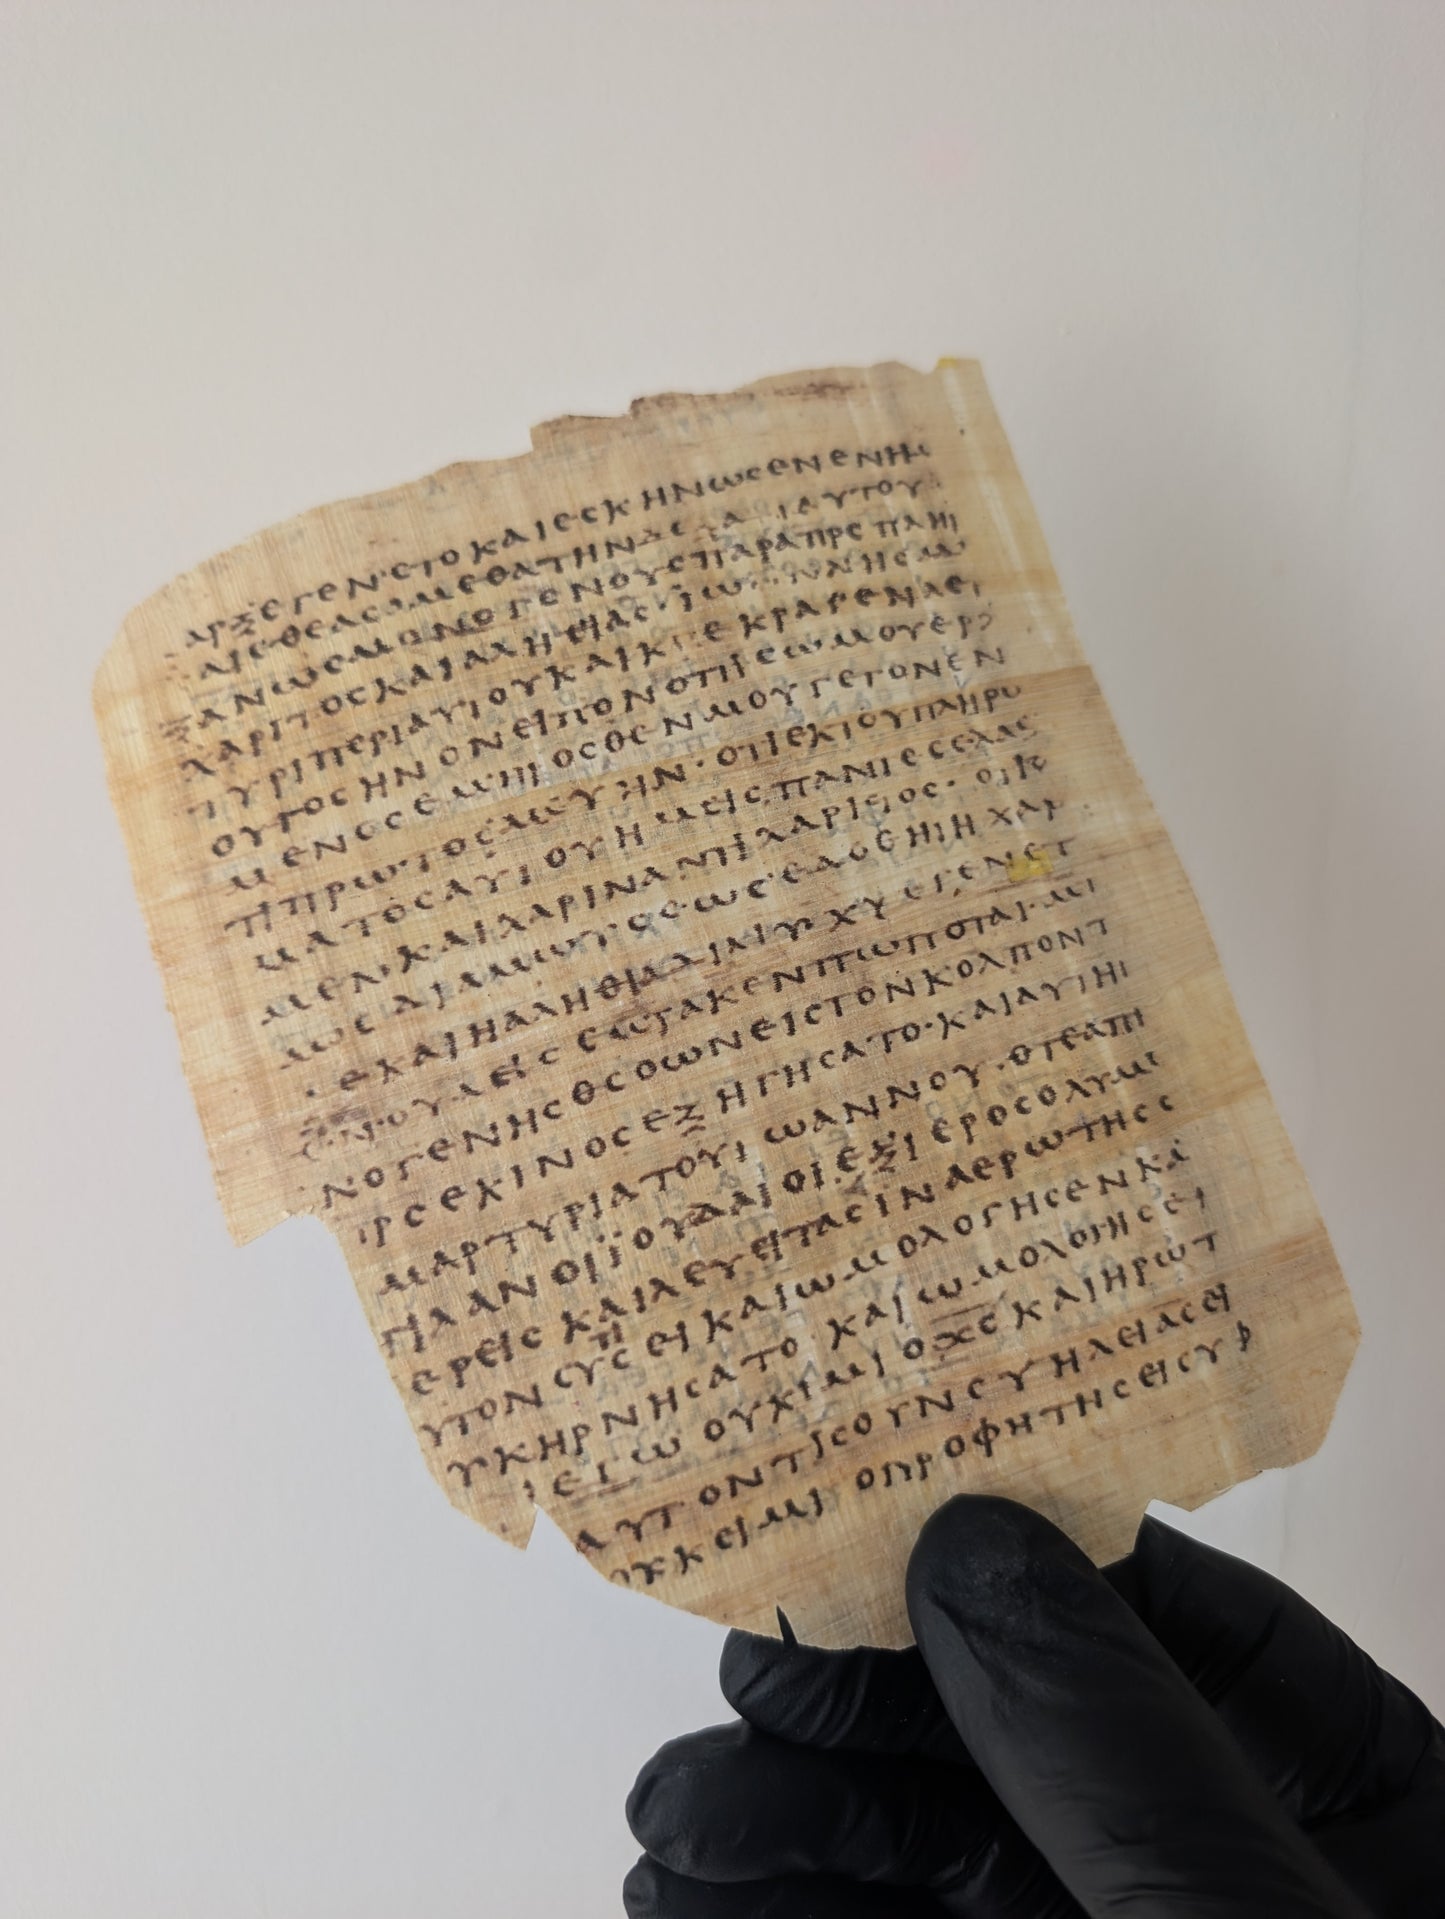 ΑΡΞΕΓΕΝΕΤΟΚΑΙΕΣΚΗΝΩΣΕΝΕΝΗΜ
ΑΙΕΘΕΑΣΑΜΕΘΑΤΗΝΔ ΑΥΤΟΥ
ΞΑΝΩΣΜΟΝΟΓΕΝΟΥΣΠΑΡΑΠΡΣΠΛΗ
ΧΑΡΙΤΟΣΚΑΙΑΛΗΘΕΙΑΣΙΩ ΝΝΗΣΜ
ΤΥΡΙΠΕΡΙΑΥΤΟΥΚΑΙΚ ΕΚΡΑΓΕΝΛΕΓ
ΟΥΤΟΣΗΝΟΝΕΙΠΟΝΟΤΙΣΕΩΜΟΥΕΡΧ
ΜΕΝΟΣΕΜΠΡΟΣΘΕΝΜΟΥΓΕΓΟΝΕΝ
ΤΙΠΡΩΤΟΣΜΟΥΗΝ·ΟΤΙΕΚΤΟΥΠΛΗΡΩ
ΜΑΤΟΣΑΥΤΟΥΗΜΕΙΣΠΑΝΤΕΣΕΛΑΒ
ΜΕΝΚΑΙΧΑΡΙΝΑΝΤΙΧΑΡΙΤΟΣ·ΟΤΙΟ
ΜΩΣ ΕΔΟΘΕΗΙΗΧΑΡ
ΕΚΑΙΗΑΛΗΘΙΑΔΙΑΙΗΥΧΥΕΓΕΝΕΤ
ΘΝΟΥΔΕΙΣΕΩΡΑΚΕΝΠΩΠΟΤΑΙ·ΜΙ
ΝΟΓΕΝΗΣΘΣΟΩΝΕΙΣΤΟΝΚΟΛΠΟΝΤ
ΠΡΣΕΚΙΝΟΣΕΞΗΓΗΣΑΤΟ·ΚΑΙΑΥΤΗΙ
ΜΑΡΤΥΡΙΑΤΟΥΙΩΑΝΝΟΥ·ΟΤΕΑΠΙ
ΤΙΛΑΝΟΙΪΟΥΔΑΙΟΙΕΞΙΕΡΟΣΟΛΥΜΩ
ΕΡΕΙΣΚΑΙΛΕΥΕΙΤΑΣΙΝΑΕΡΩΤΗΣΣ
ΥΤΟΝΣΥΤΙΣΕΙΚΑΙΩΜΟΛΟΓΗΣΕΝΚΑ
ΥΚΗΡΝΗΣΑΤΟΚΑΙΩΜΟΛΟΓΗΣΕΙ
ΕΓΩΟΥΚΙΜΙΟΧΣΚΑΙΗΡΩΤ
ΑΥΤΟΝΤΙΣΟΥΝΣΥΗΛΕΙΑΣΕΙ
ΟΥΚΕΙΜΙΟΠΡΟΦΗΤΗΣΕΙΣΥ